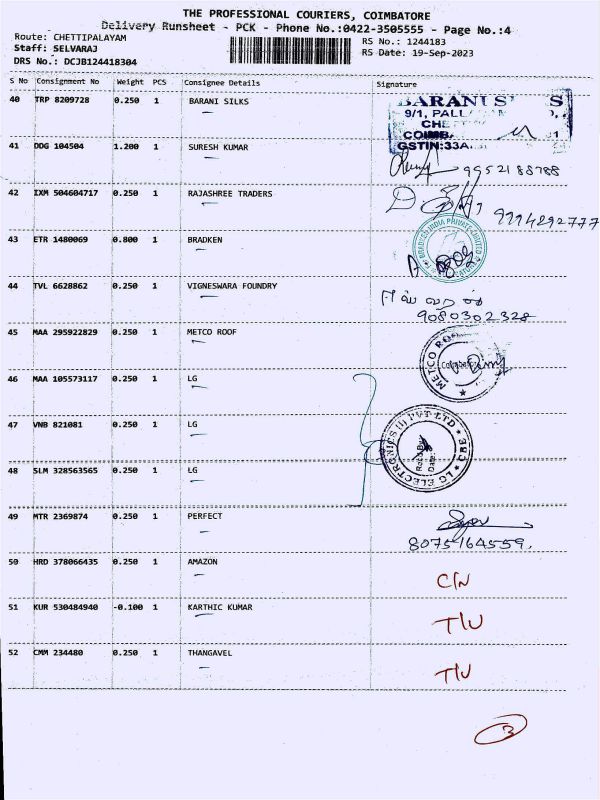 THE PROFESSIONAL COURIERS, COIMBATORE
Delivery Runsheet - PCK - Phone No.:0422-3505555 - Page No.:4
Route: CHETTIPALAYAM
RS No.: 1244183
Staff: SELVARAJ
RS Date: 19-Sep-2023
DRS No.: DCJB124418304
S No Consignment No Weight PCS Consignee Details Signature
40 TRP 8209728 0.250 1 BARANI SILKS
BARANI S S
9/1, PALL
CHE
COIMB 1
GSTIN:33A
41 DDG 104504 1.200 1 SURESH KUMAR
9952188788
42 IXM 504604717 0.250 1 RAJASHREE TRADERS
9994292777
43 ETR 1480069 0.800 1 BRADKEN
BRADKEN INDIA PRIVATE LIMITED
44 TVL 6628862 0.250 1 VIGNESWARA FOUNDRY
9080302328
45 MAA 295922829 0.250 1 METCO ROOF
METCO ROO
46 MAA 105573117 0.250 1 LG
47 VNB 821081 0.250 1 LG
LG ELECTRONICS (I) PVT LTD
48 SLM 328563565 0.250 1 LG
49 MTR 2369874 0.250 1 PERFECT
8075164559.
50 HRD 378066435 0.250 1 AMAZON
C/N
51 KUR 530484940 -0.100 1 KARTHIC KUMAR
T/U
52 CMM 234480 0.250 1 THANGAVEL
T/U
3